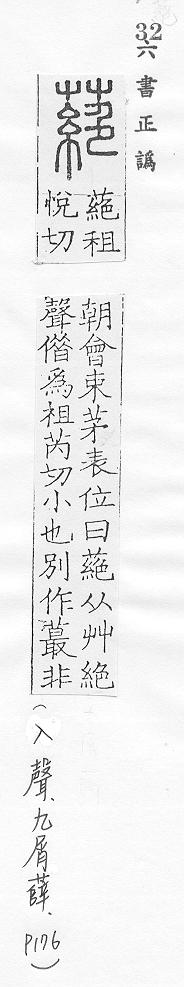 32
六書正譌
蕝
蕝祖
悅切
朝會束茅表位曰蕝从艸絕
聲偺爲祖芮切小也別作蕞非
(入聲、九屑薛、P176)